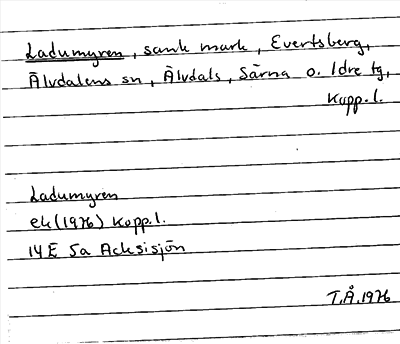 Ladumyren, sank mark, Evertsberg,
Älvdalens sn, Älvdals, Särna o. Idre tg,
Kopp.l.
Ladumyren
ek(1976) Kopp.l.
14E 5a Acksisjön
T.Å.1976